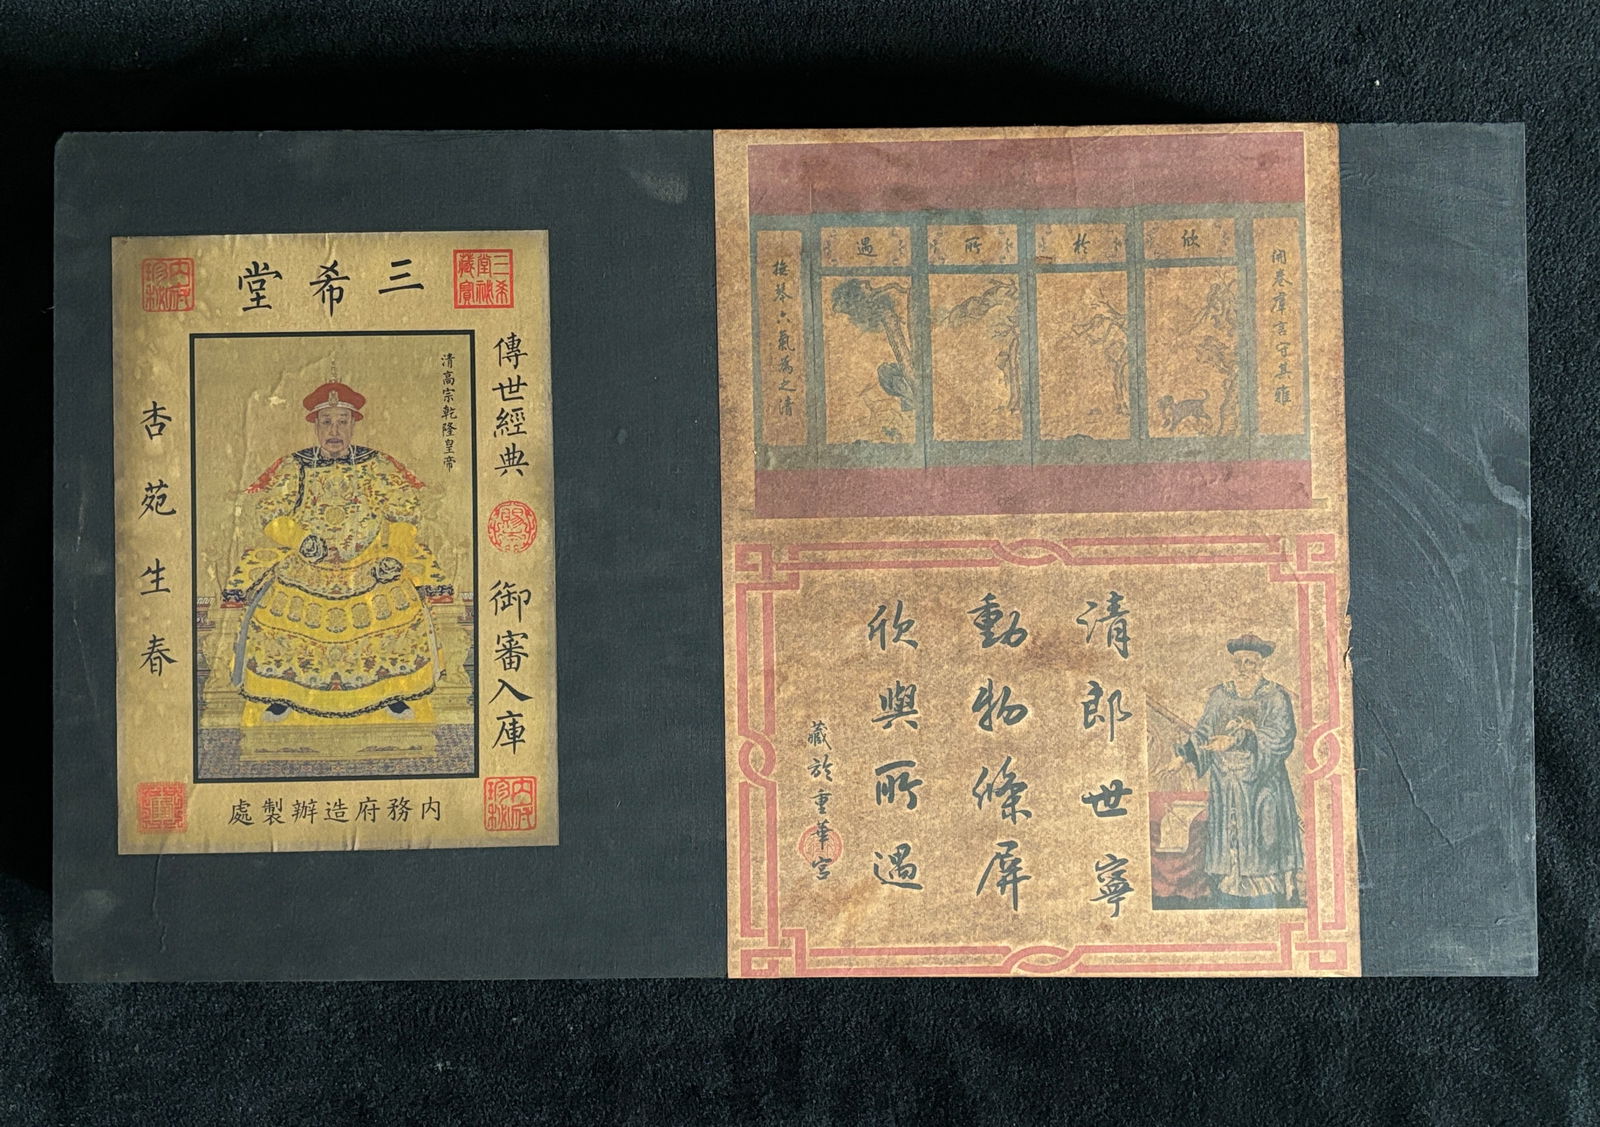 三希堂
內府珍秘
三希堂秘藏寶
傳世經典
御審入庫
清高宗乾隆皇帝
杏苑生春
內務府造辦製處
內府珍秘
開卷群言守其雅
欣於所遇
撫琴六氣為之清
清郎世寧
動物條屏
欣與所遇
藏於重華宮